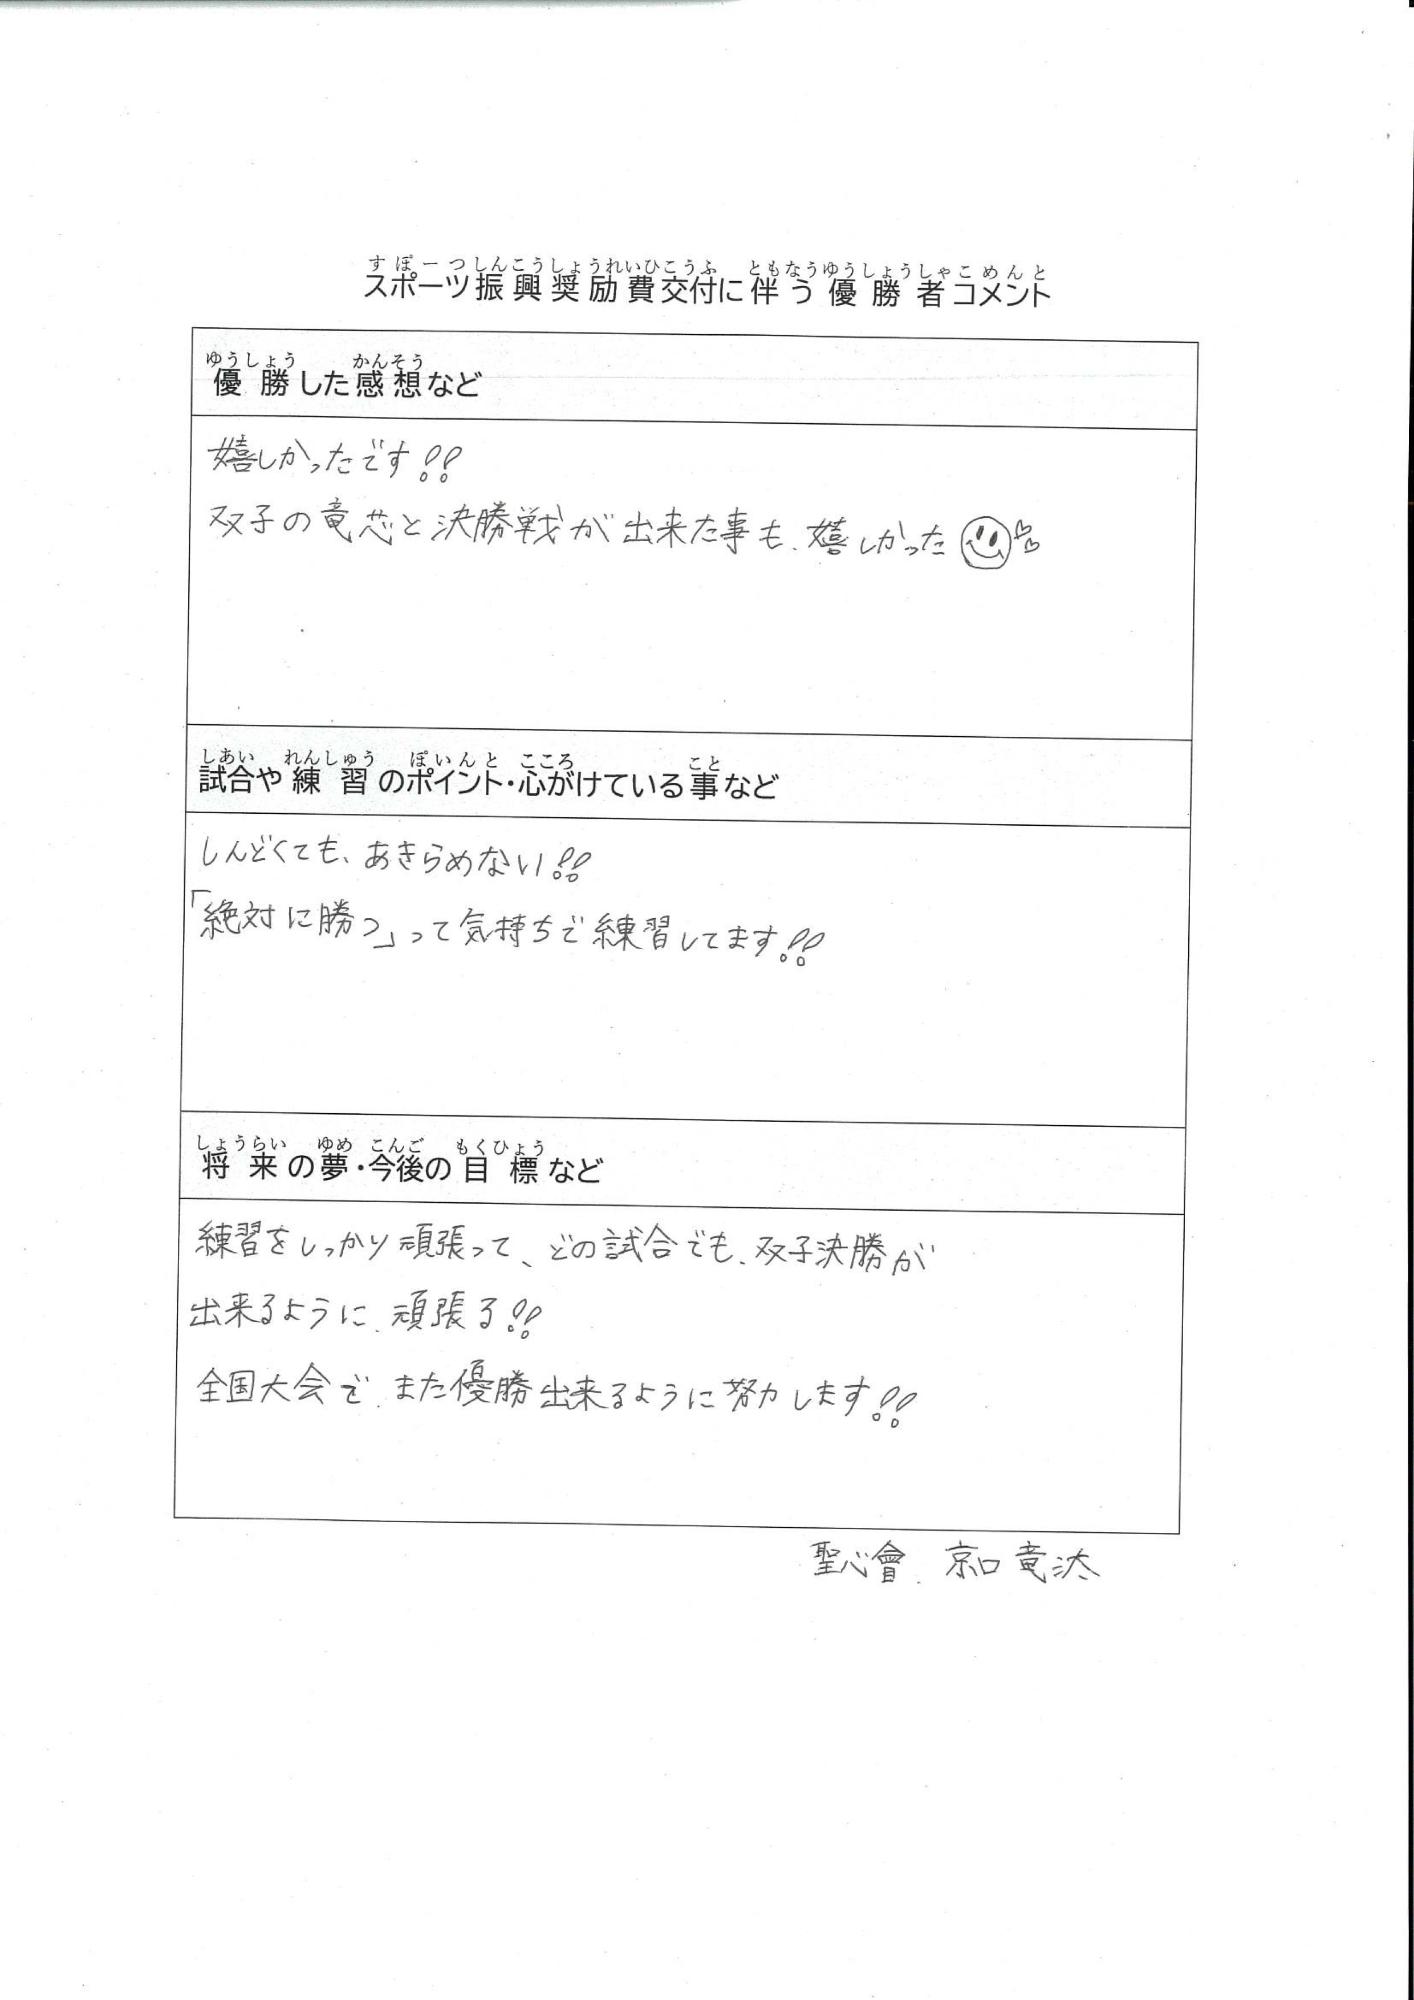 すぽーつしんこうしょうれいひこうふ ともなうゆうしょうしゃこめんと
スポーツ振興奨励費交付に伴う優勝者コメント
ゆうしょう かんそう
優勝した感想など
嬉しかったです!!
双子の竜芯と決勝戦が出来た事も、嬉しかった
しあい れんしゅう ぽいんと こころ こと
試合や練習のポイント・心がけている事など
しんどくても、あきらめない!!
「絶対に勝つ」って気持ちで練習してます!!
しょうらい ゆめ こんご もくひょう
将来の夢・今後の目標など
練習をしっかり頑張って、どの試合でも、双子決勝が
出来るように、頑張る!!
全国大会で、また優勝出来るように努力します!!
聖心會、京口竜汰